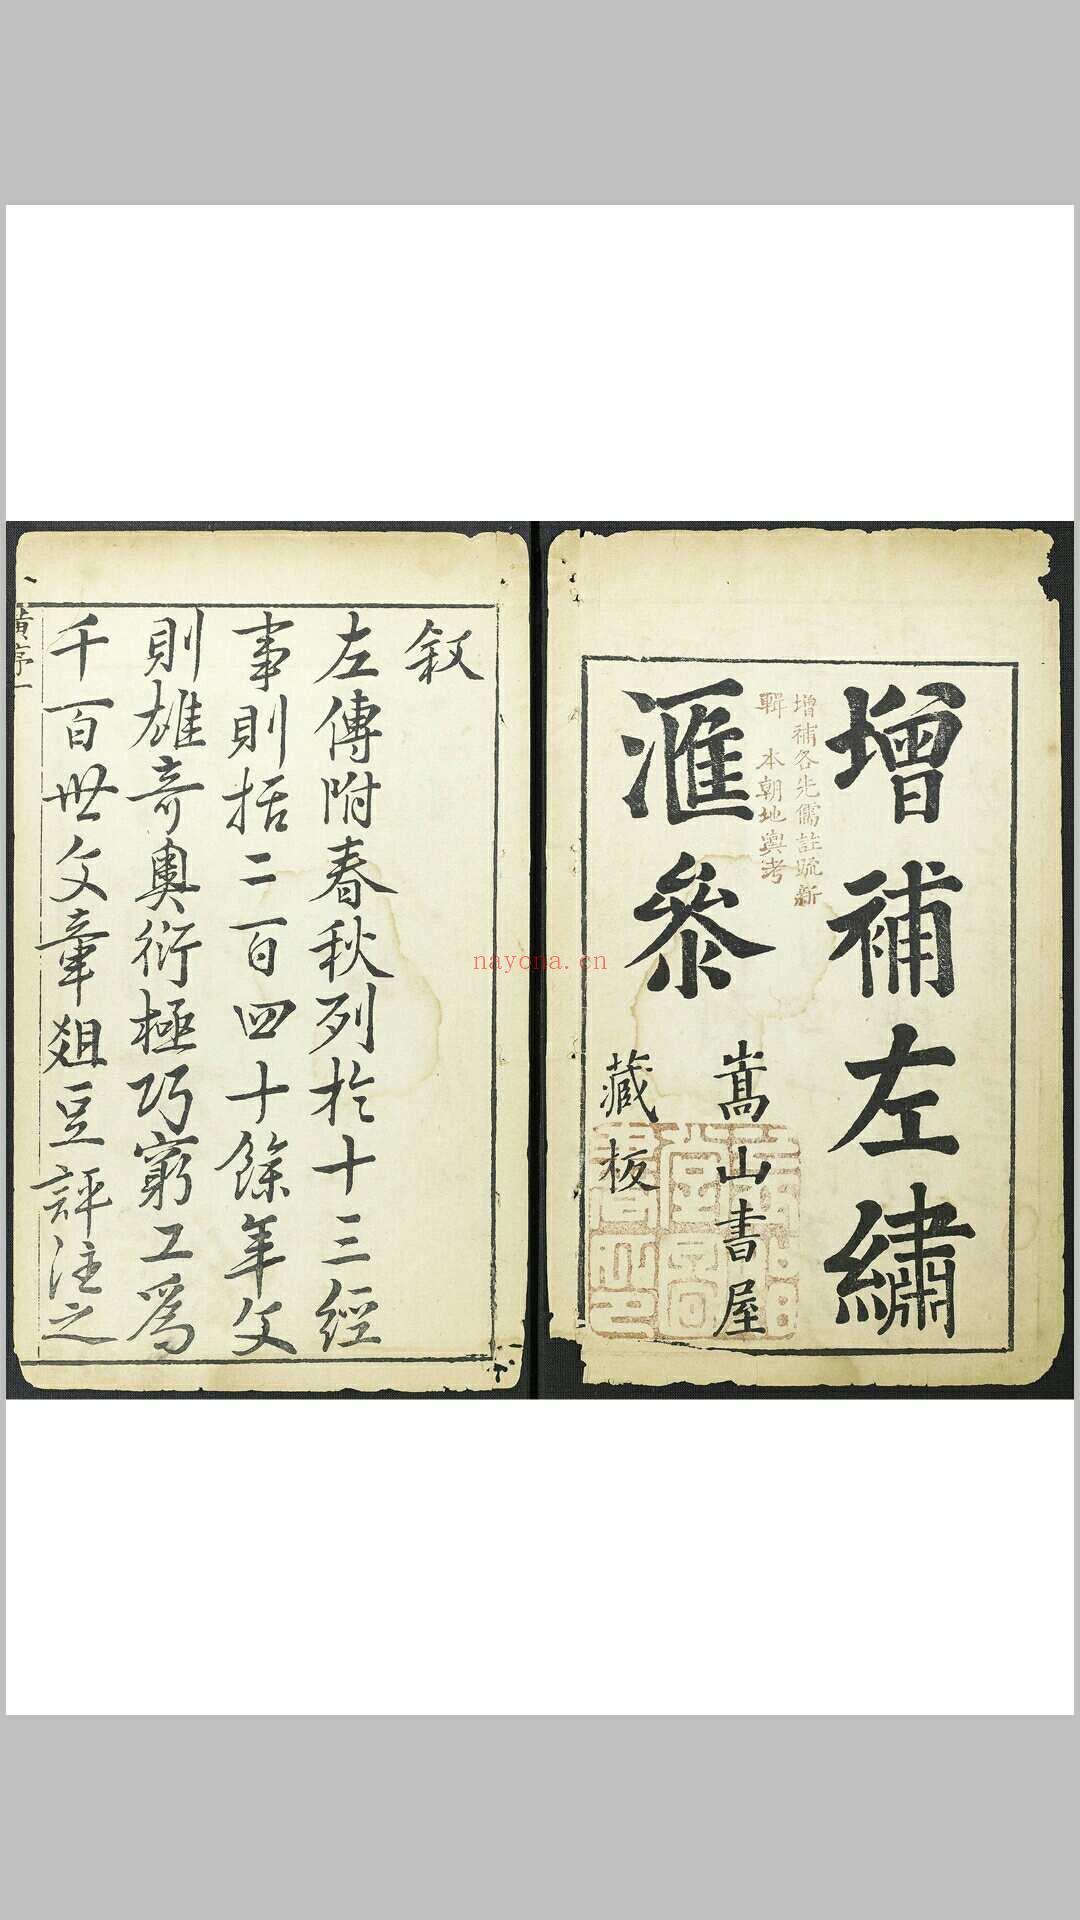 增補左繡
滙參
增補各先儒註疏新
輯 本朝地輿考
嵩山書屋
藏板
叙
左傳附春秋列於十三經
事則括二百四十餘年文
則雄奇奥衍極巧窮工爲
千百世文章爼豆評注之
nayona.cn